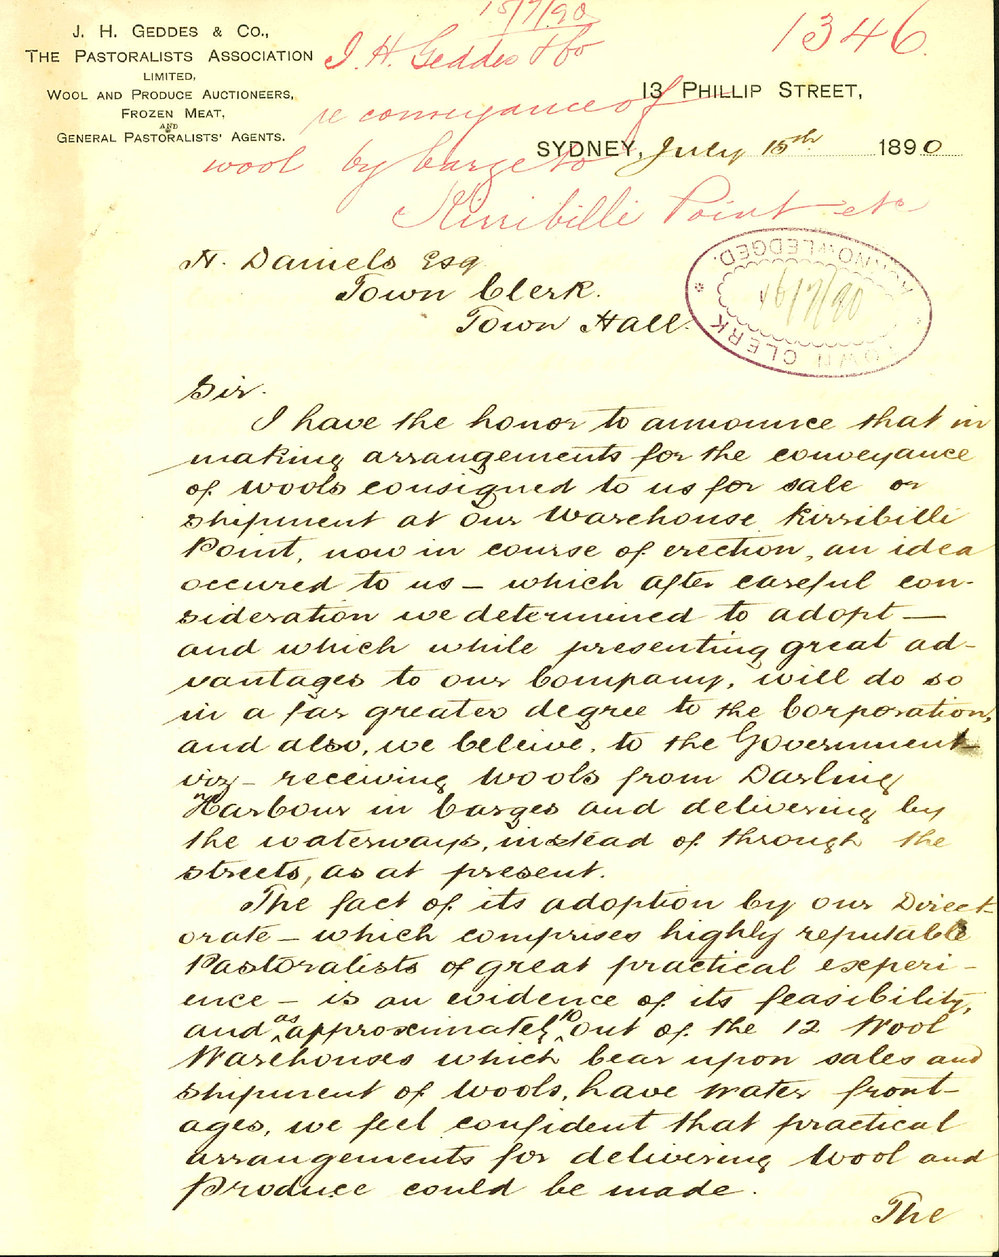 J. H. GEDDES & CO.,
THE PASTORALISTS ASSOCIATION
LIMITED,
WOOL AND PRODUCE AUCTIONEERS,
FROZEN MEAT,
AND
GENERAL PASTORALISTS' AGENTS.
15/7/90
J. H. Geddes & Co
1346.
re conveyance of
wool by barge to
Kirribilli Point etc
13 PHILLIP STREET,
SYDNEY, July 15th 1890
H. Daniels Esq
Town Clerk.
Town Hall.
TOWN CLERK
ACKNOWLEDGED.
16/7/90
Sir.
I have the honor to announce that in
making arrangements for the conveyance
of wools consigned to us for sale or
shipment at our Warehouse Kirribilli
Point, now in course of erection, an idea
occured to us – which after careful con-
sideration we determined to adopt —
and which while presenting great ad-
vantages to our Company, will do so
in a far greater degree to the Corporation,
and also, we beleive, to the Government
viz – receiving wools from Darling
Harbour in barges and delivering by
the waterways, instead of through the
streets, as at present.
The fact of its adoption by our Direct-
orate – which comprises highly reputable
Pastoralists of great practical experi-
ence – is an evidence of its feasibility,
and as approximately 10 out of the 12 Wool
Warehouses which bear upon sales and
shipment of wools, have water front-
ages, we feel confident that practical
arrangements for delivering Wool and
Produce could be made.
The